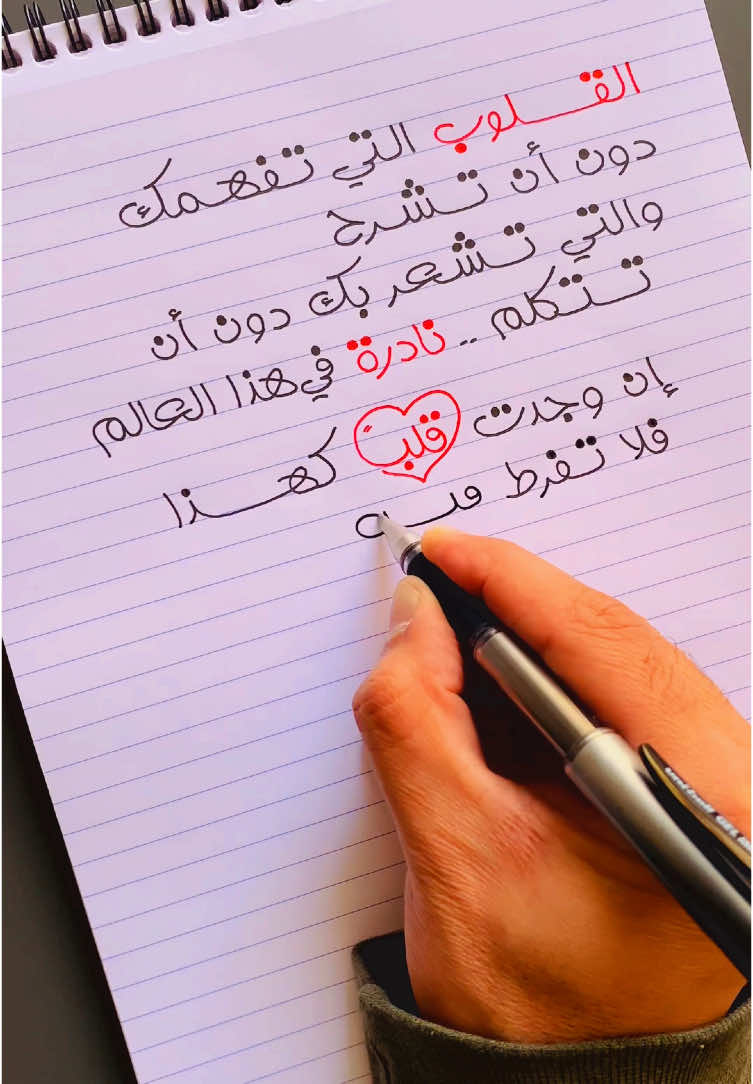 القلوب التي تفهمك
دون أن تشرح
والتي تشعر بك دون أن
تتكلم .. نادرة في هذا العالم
إن وجدت قلبً كهذا
فلا تفرط فيه